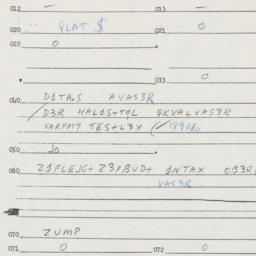 012 — 013 —
020 QLAT $ 021 0
022 0
033 0
040 D1TA,S AVAS3R
D3R HAL1S+TQL QKVALVAS3R
VARFM7 TES+L3X
050 Jo
060 Z1FLEJG+ Z3%BUD+ 1NTAX
VAS3R
070 ZUMP
071 0 072 0